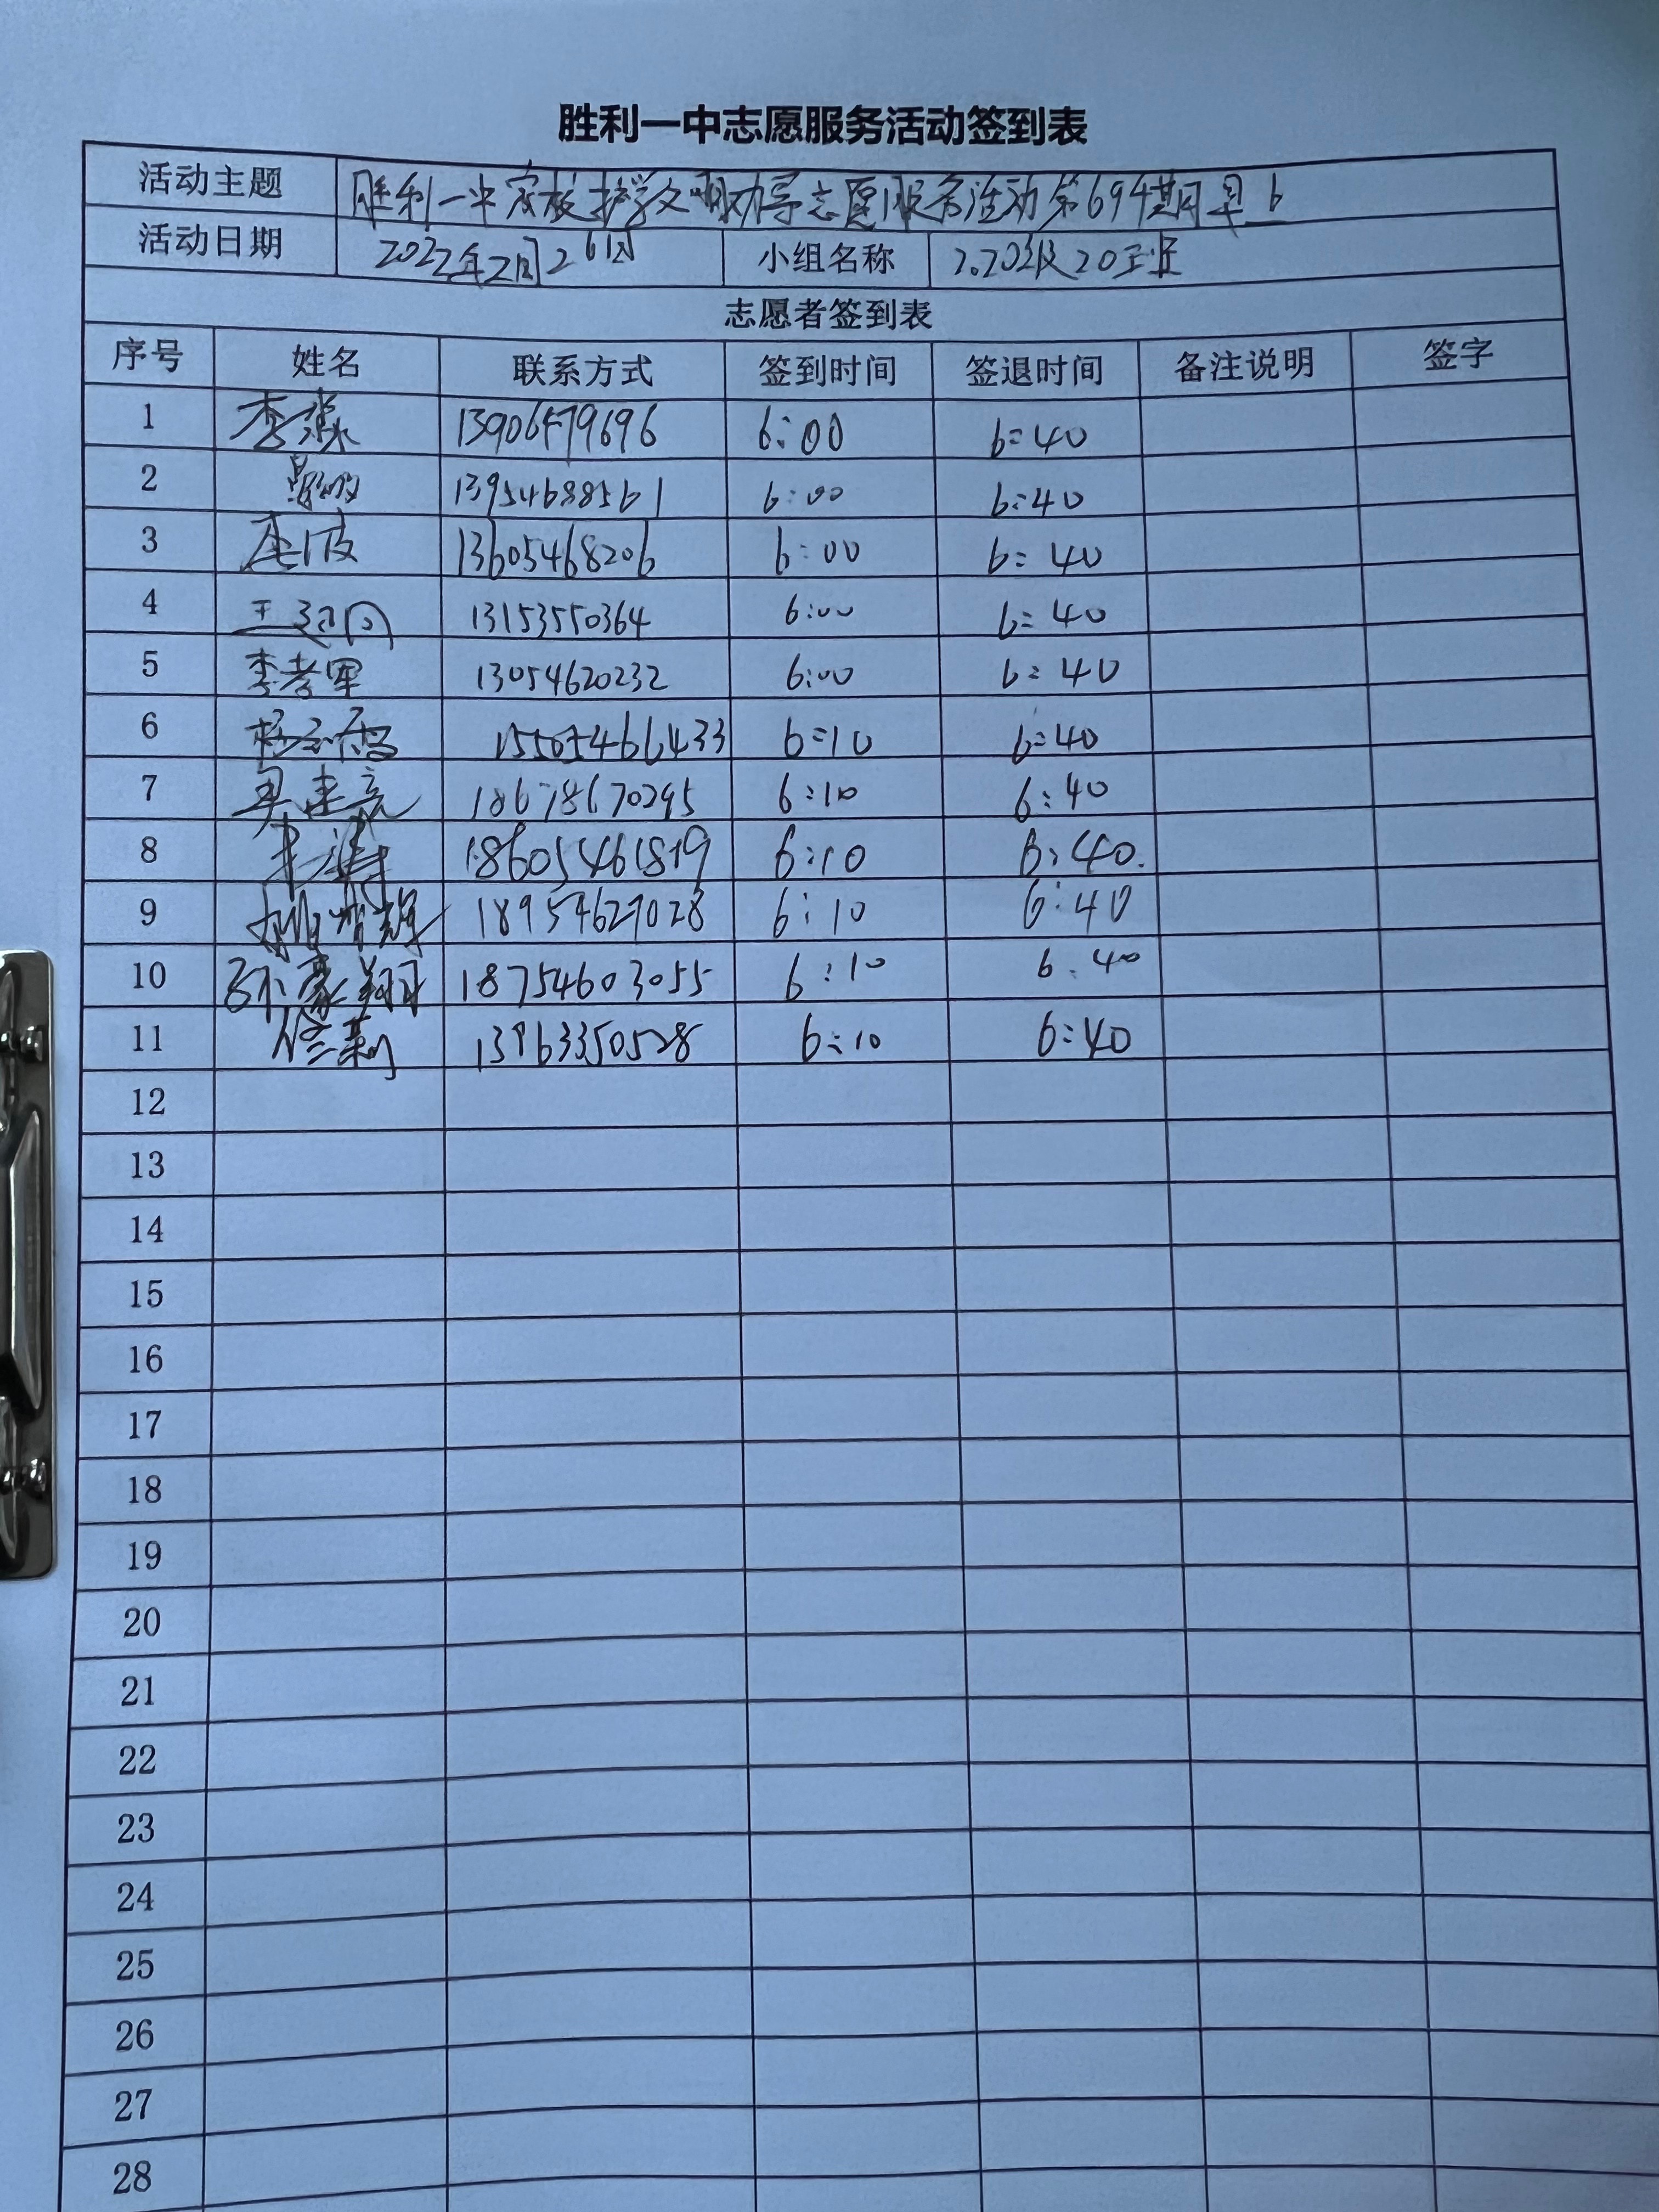 胜利一中志愿服务活动签到表
活动主题 胜利一中家校护学文明劝导志愿服务活动第694期早6
活动日期 2022年2月26日 小组名称 2020级20班
志愿者签到表
序号 姓名 联系方式 签到时间 签退时间 备注说明 签字
1 李淼 13906479696 6:00 6:40
2 13954688561 6:00 6:40
3 13605468206 6:00 6:40
4 13153550364 6:00 6:40
5 李孝军 13054620232 6:00 6:40
6 15505466433 6:10 6:40
7 18678670295 6:10 6:40
8 18605461819 6:10 6:40
9 18954627028 6:10 6:40
10 孙豪翔 18754603055 6:10 6:40
11 徐莉 13963350528 6:10 6:40
12
13
14
15
16
17
18
19
20
21
22
23
24
25
26
27
28